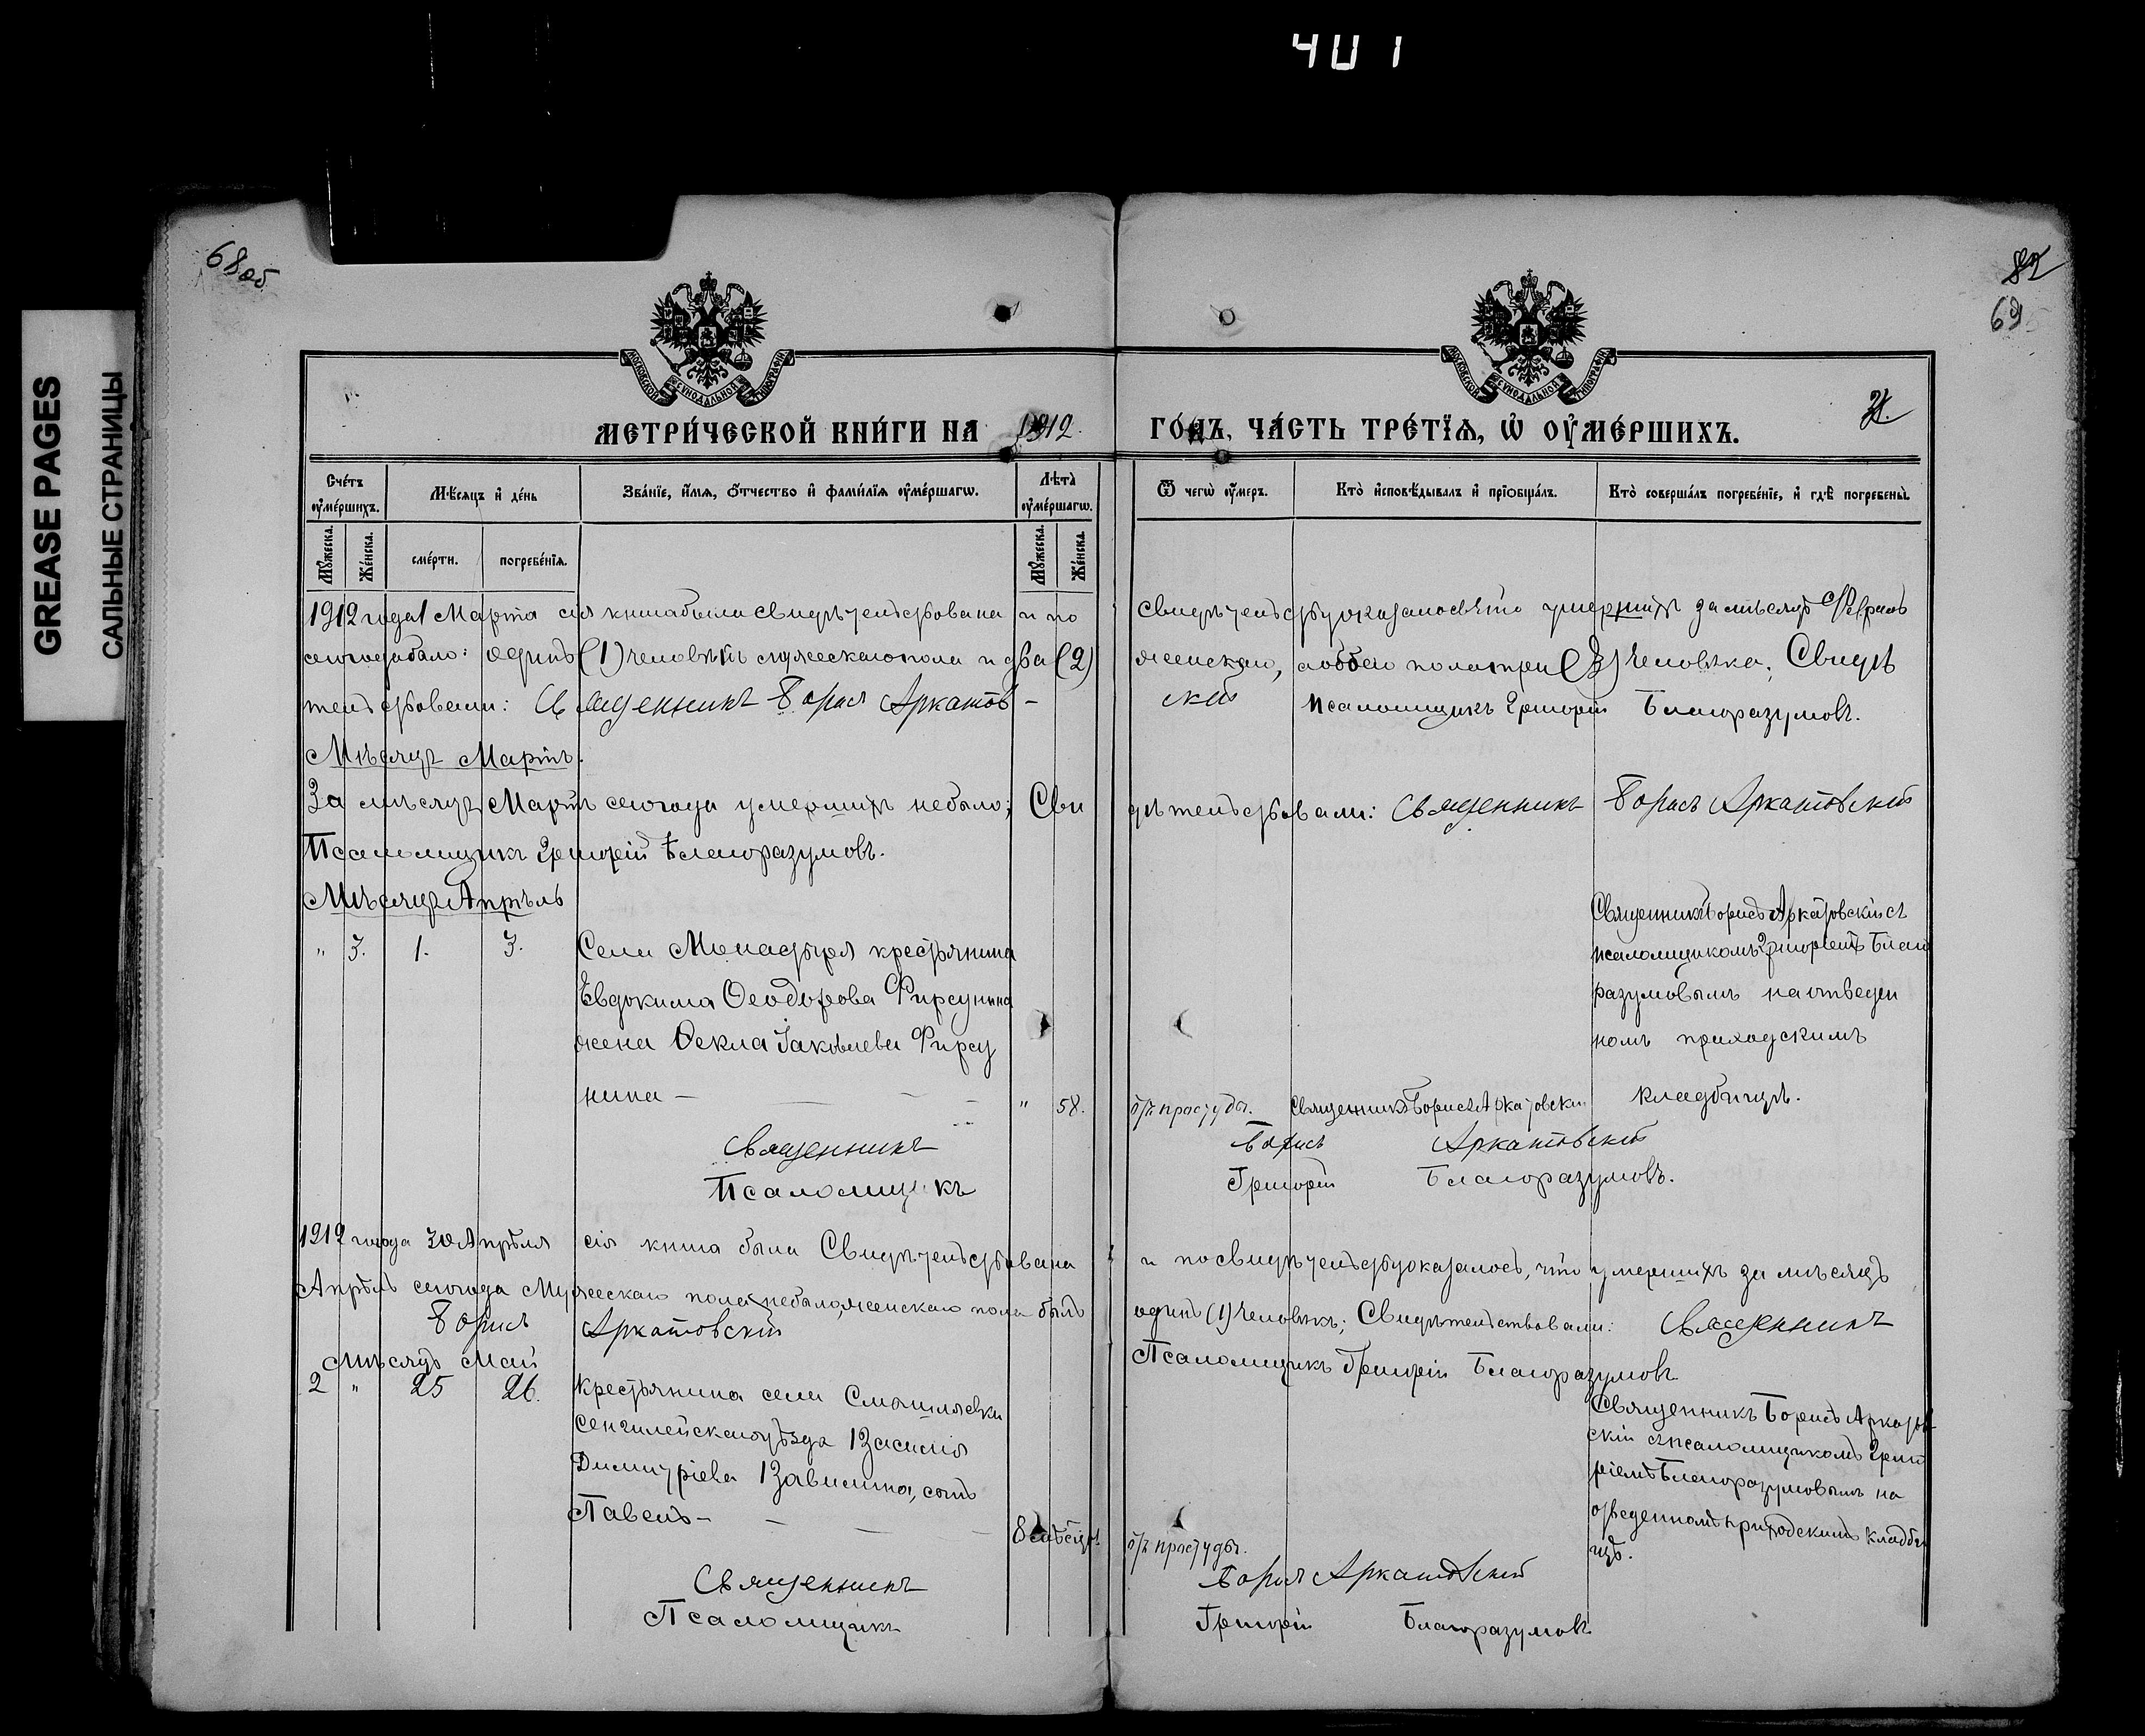 4U 1
GREASE PAGES
САЛЬНЫЕ СТРАНИЦЫ
68об
82
69
МОСКОВСКОЙ СУНОДАЛЬНОЙ ТИПОГРАФІИ
МОСКОВСКОЙ СУНОДАЛЬНОЙ ТИПОГРАФІИ
МЕТРИ́ЧЕСКОЙ КНИ́ГИ НА 1912. ГО́ДЪ, ЧА́СТЬ ТРЕ́ТЇѦ, Ѡ҆ ОУ҆МЕ́РШИХЪ.
Сче́тъ оу҆ме́ршихъ.
Мѣ́сѧцъ и҆ де́нь
Зва́нїе, и҆́мѧ, ѻ҆́тчество и҆ фами́лїѧ оу҆ме́ршагѡ.
Лѣ́та̀ оу҆ме́ршагѡ.
Ѿ чегѡ̀ оу҆́меръ.
Кто̀ и҆сповѣ́дывалъ и҆ прїѡбща́лъ.
Кто̀ соверша́лъ погребе́нїе, и҆ гдѣ̀ погребены̀.
Мꙋ́жеска.
Же́нска.
сме́рти.
погребе́нїѧ.
Мꙋ́жеска.
Же́нска.
1912 года 1 Марта сія книга была свидѣтельствована и по свидѣтельству оказалось что умершихъ за мѣсяцъ Февраль
сего года было: одинъ (1) человѣкъ мужескаго пола и два (2) женскаго, а обоего пола три (3) человѣка; Свидѣ
тельствовали: Священникъ Борисъ Аркатов- скій Псаломщикъ Григорій Благоразумовъ.
Мѣсяцъ Мартъ.
За мѣсяцъ Мартъ сего года умершихъ не было; Сви дѣтельствовали: Священникъ Борисъ Аркатовскій
Псаломщикъ Григорій Благоразумовъ.
Мѣсяцъ Апрѣль
" 3. 1. 3. Села Монастыря крестьянина
Евдокима Ѳеодорова Фирсунина
жена Ѳекла Іаковлева Фирсу
нина - " 58. отъ простуды. Священникъ Борисъ Аркатовскій
Священникъ Борисъ Аркатовскій съ
псаломщикомъ Григоріемъ Благо
разумовымъ на отведен
номъ приходскимъ
кладбищѣ.
Священникъ Борисъ Аркатовскій
Псаломщикъ Григорій Благоразумовъ.
1912 года 30 Апрѣля сія книга была Свидѣтельствована и по свидѣтельству оказалось, что умершихъ за мѣсяцъ
Апрѣль сего года Мужескаго пола не было, женскаго пола былъ одинъ (1) человѣкъ; Свидѣтельствовали: Священникъ
Борисъ Аркатовскій Псаломщикъ Григорій Благоразумовъ
Мѣсяцъ Май
2 " 25 26. Крестьянина села
Сенгилейскаго уѣзда Василія
Димитріева сынъ
Павелъ - 8 мѣсяц. отъ простуды.
Священникъ Борисъ Аркатов
скій съ псаломщикомъ Григо
ріемъ Благоразумовымъ на
отведенномъ приходскимъ кладби
щѣ.
Священникъ Борисъ Аркатовскій
Псаломщикъ Григорій Благоразумовъ